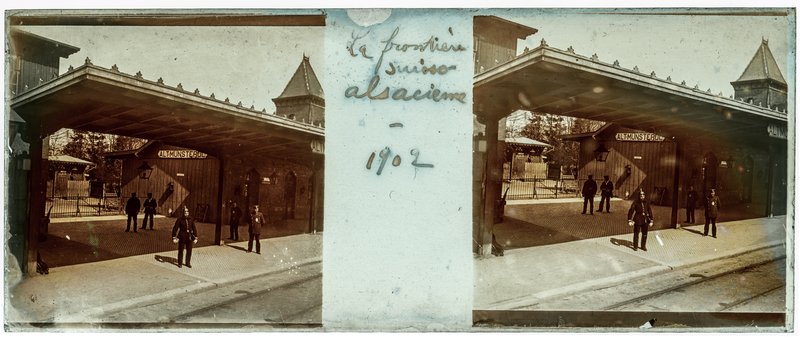 La frontière
suisso
alsacienne
-
1902
ALTMÜNSTEROL
ALTMÜNSTEROL